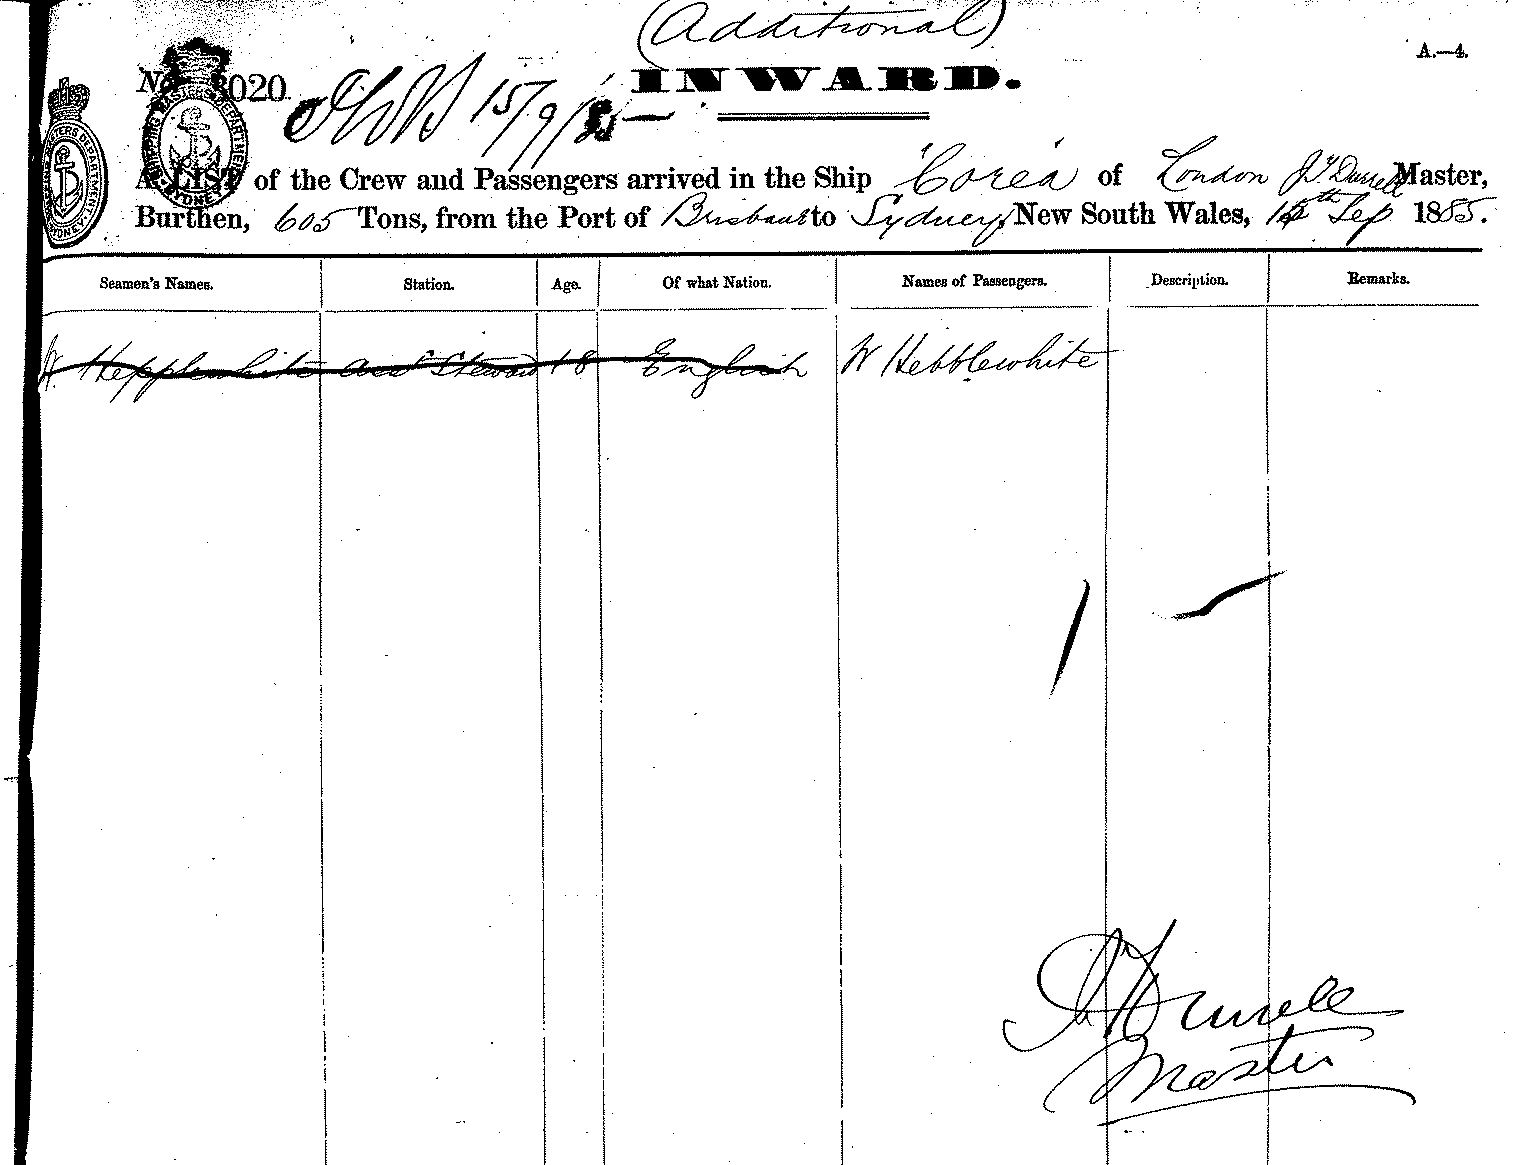 (Additional)
A.—4.
No. 3020. 15/9/85 INWARD.
A LIST of the Crew and Passengers arrived in the Ship "Corea" of London J T Durrell Master,
Burthen, 605 Tons, from the Port of Brisbane to Sydney, New South Wales, 12th Sep 1885.
Seamen's Names. Station. Age. Of what Nation. Names of Passengers. Description. Remarks.
W. Hepplewhite Steward 18 English W Hebblewhite
J T Durrell
Master